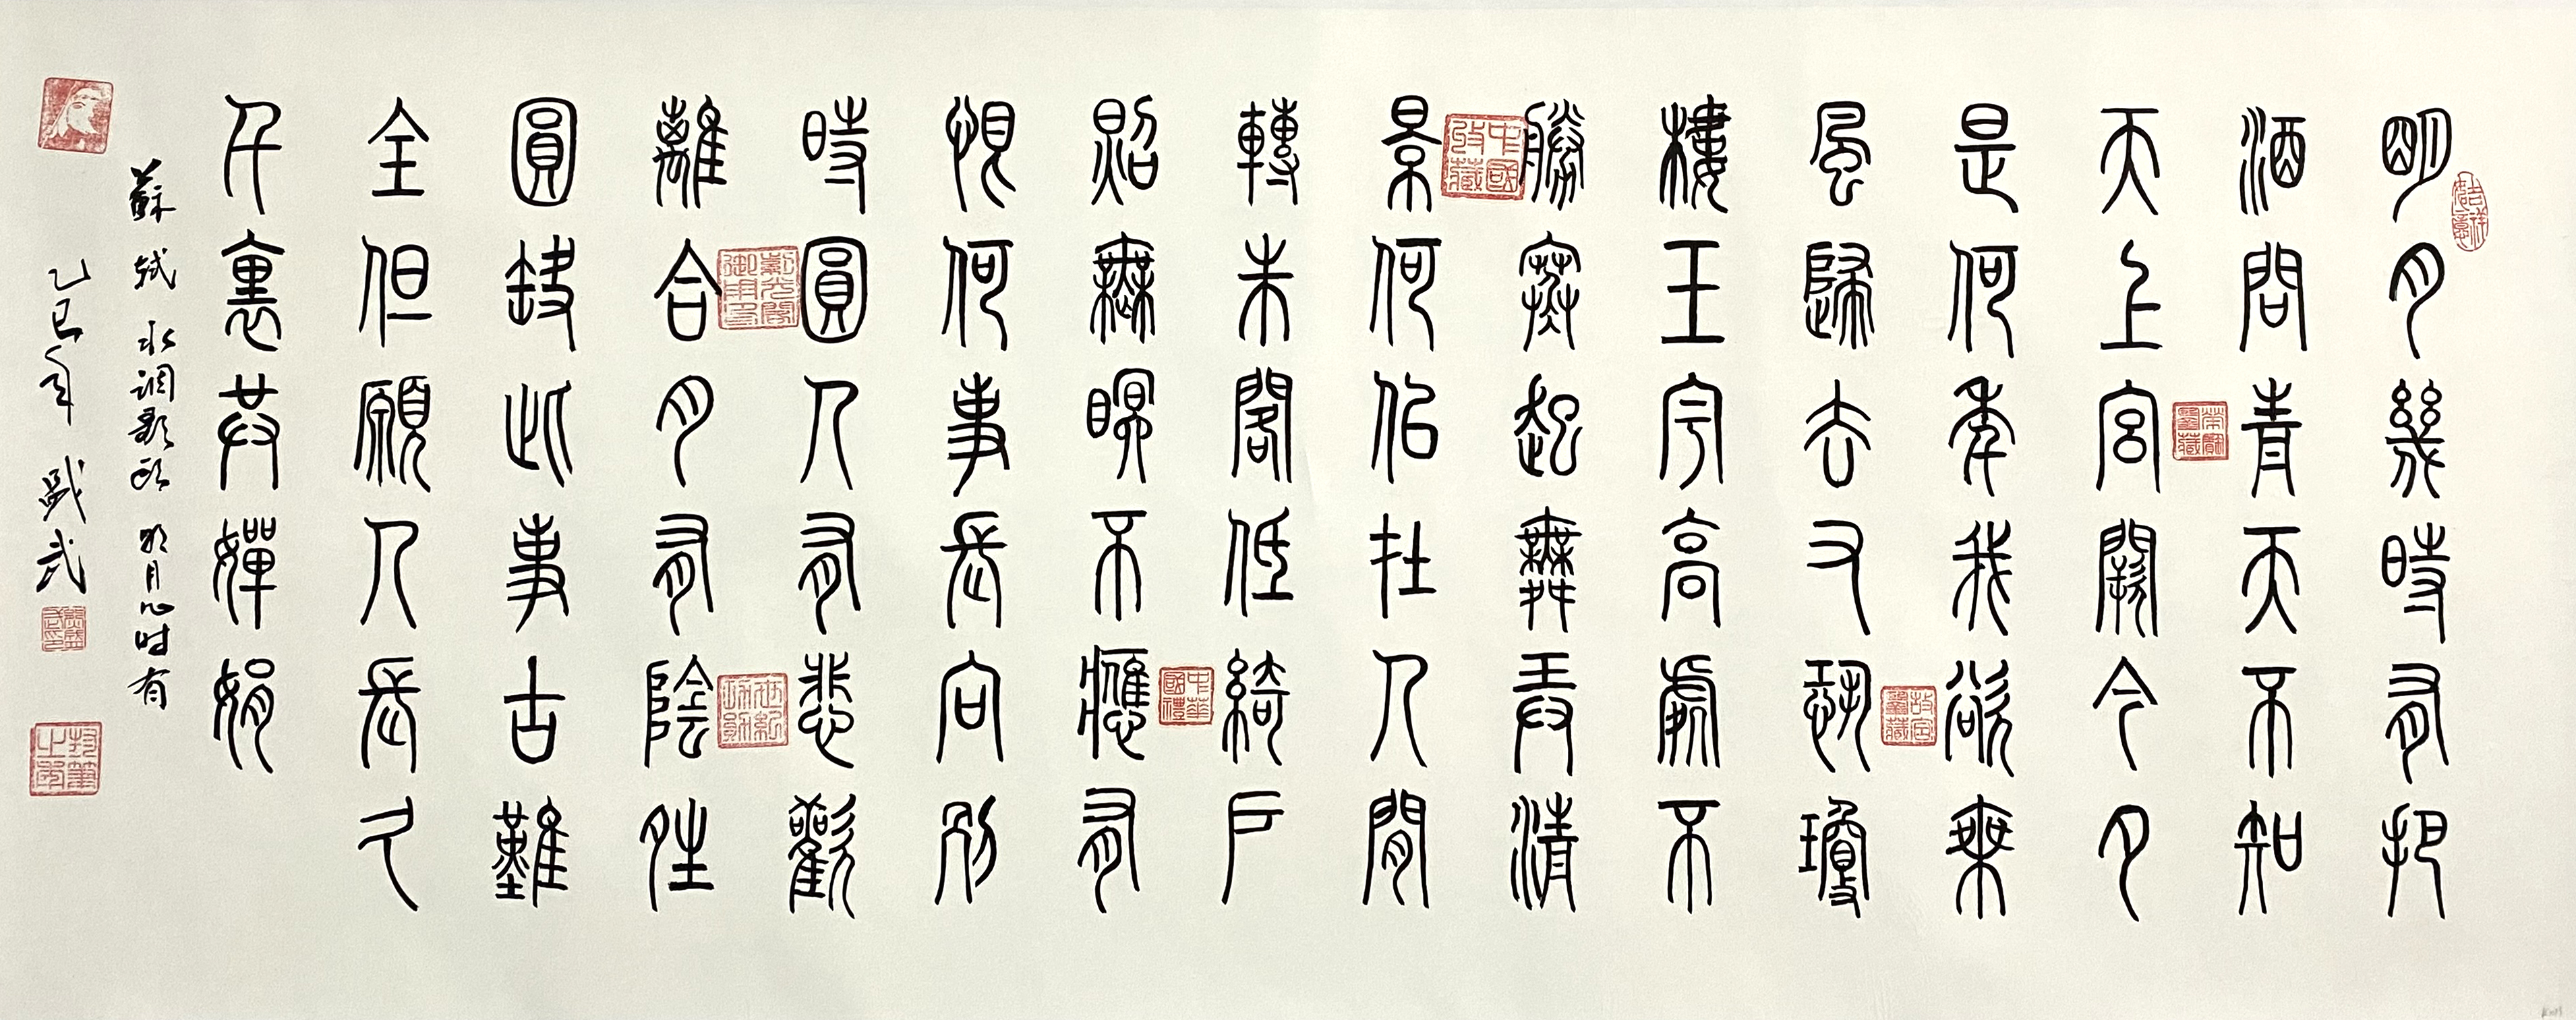 吉祥如意
明月幾時有把
酒問青天不知
天上宮闕今夕
是何年我欲乘
風歸去又恐瓊
樓玉宇高處不
勝寒起舞弄清
中國收藏
景何似在人間
轉朱閣低綺戶
中華國禮
照無眠不應有
恨何事長向別
時圓人有悲歡
離合月有陰夝
圓缺此事古難
全但願人長久
千裏共嬋娟
蘇軾 水調歌頭 明月几时有
乙巳年 盛武
封筆之作